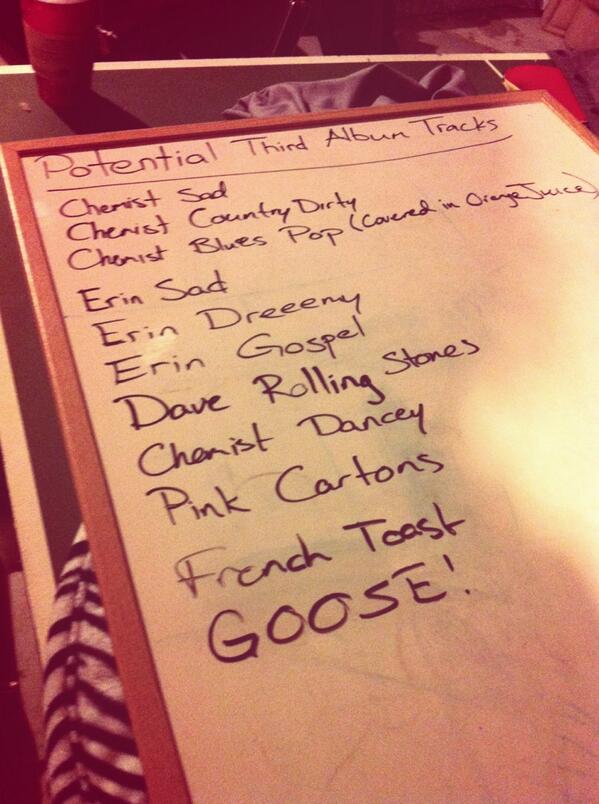 Potential Third Album Tracks
Chemist Sad
Chemist Country Dirty
Chemist Blues Pop (Covered in Orange Juice)
Erin Sad
Erin Dreeemy
Erin Gospel
Dave Rolling Stones
Chemist Dancey
Pink Cartons
French Toast
GOOSE!